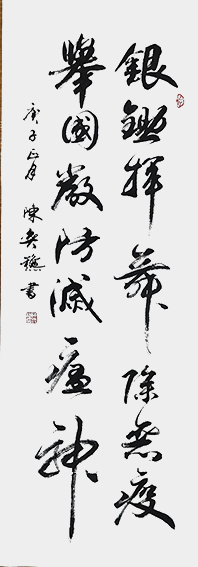 銀鋤揮舞除惡疫
舉國嚴防滅瘟神
庚子正月 陳奕 書